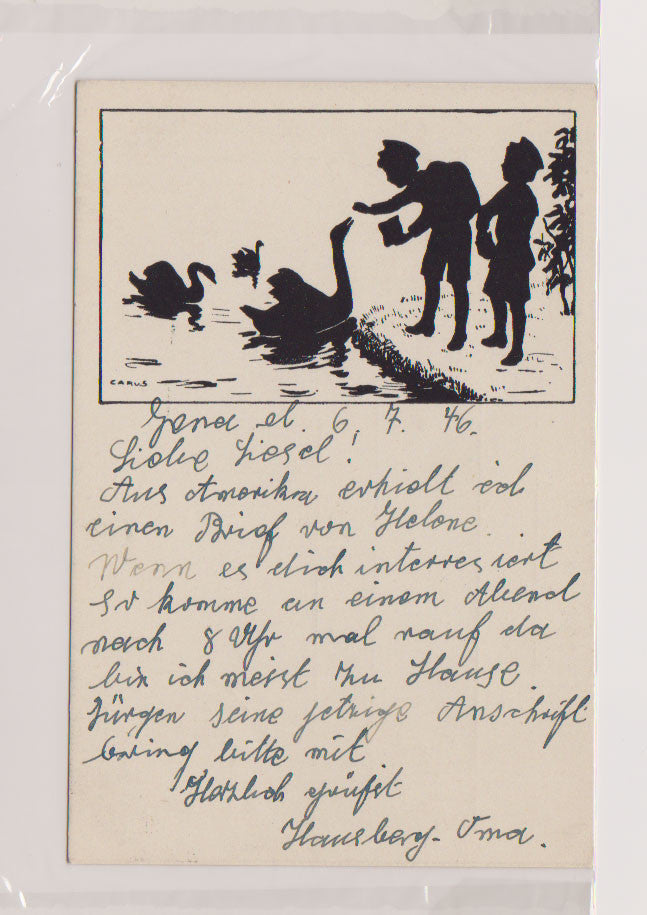 CARUS
Jena d. 6. 7. 46.
Liebe Liesel!
Aus Amerika erhielt ich
einen Brief von Helene.
Wenn es dich interresiert
so komme an einem Abend
nach 8 Uhr mal rauf da
bin ich meist zu Hause.
Jürgen seine jetzige Anschrift
bring bitte mit
Herzlich grüßt
Hausberg-Oma.